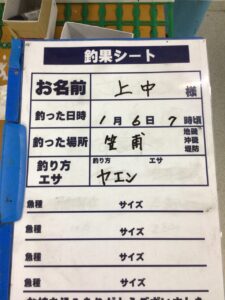 釣果シート
お名前 上中 様
釣った日時 1月6日7時頃
釣った場所 笠甫 地磯 沖磯 堤防
釣り方 エサ 釣り方 ヤエン エサ
魚種 サイズ
魚種 サイズ
魚種 サイズ
魚種 サイズ